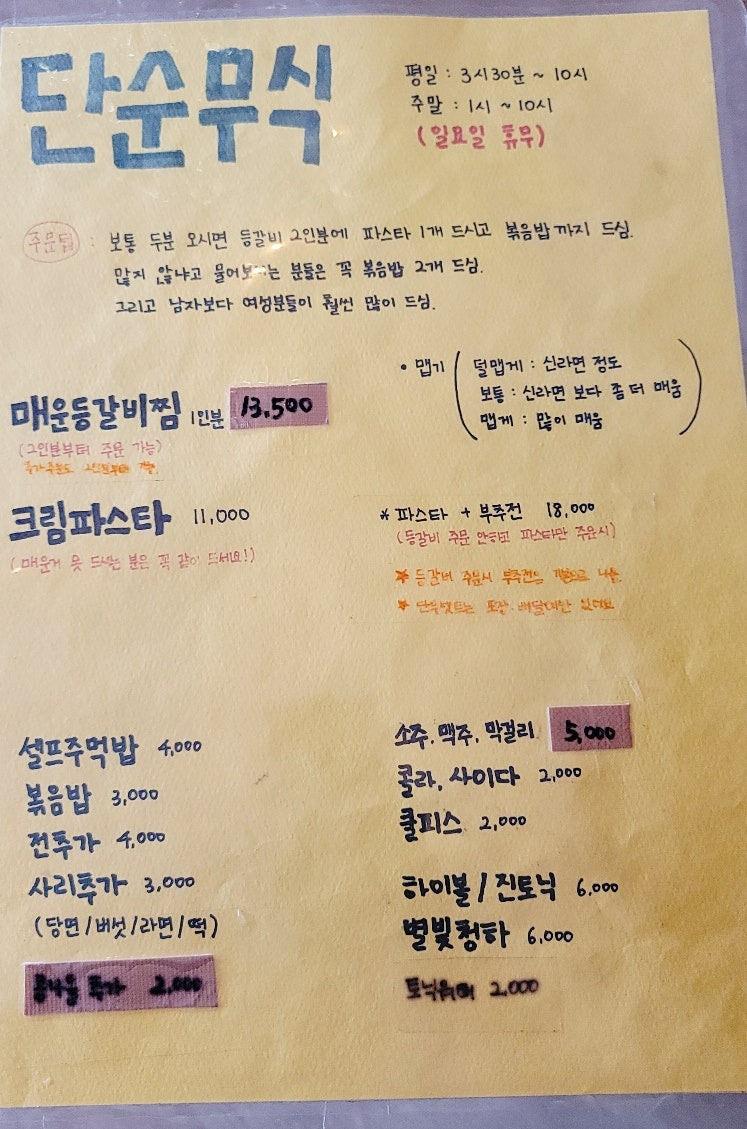 단순무식
평일 : 3시30분 ~ 10시
주말 : 1시 ~ 10시
(일요일 휴무)
주문팁 : 보통 두분 오시면 등갈비 2인분에 파스타 1개 드시고 볶음밥까지 드심.
많지 않냐고 물어보시는 분들은 꼭 볶음밥 2개 드심.
그리고 남자보다 여성분들이 훨씬 많이 드심.
• 맵기
덜맵게 : 신라면 정도
보통 : 신라면 보다 좀 더 매움
맵게 : 많이 매움
매운등갈비찜 1인분 13,500
(2인분부터 주문 가능)
추가주문도 2인분부터 가능.
크림파스타 11,000
(매운거 못 드시는 분은 꼭 같이 드세요!)
* 파스타 + 부추전 18,000
(등갈비 주문 안하고 파스타만 주문시)
* 등갈비 주문시 부추전은 기본으로 나옴.
* 단무셋트는 포장·배달에만 있어요
셀프주먹밥 4,000
볶음밥 3,000
전추가 4,000
사리추가 3,000
(당면/버섯/라면/떡)
콩나물 추가 2,000
소주. 맥주. 막걸리 5,000
콜라, 사이다 2,000
쿨피스 2,000
하이볼/진토닉 6,000
별빛청하 6,000
토닉워터 2,000